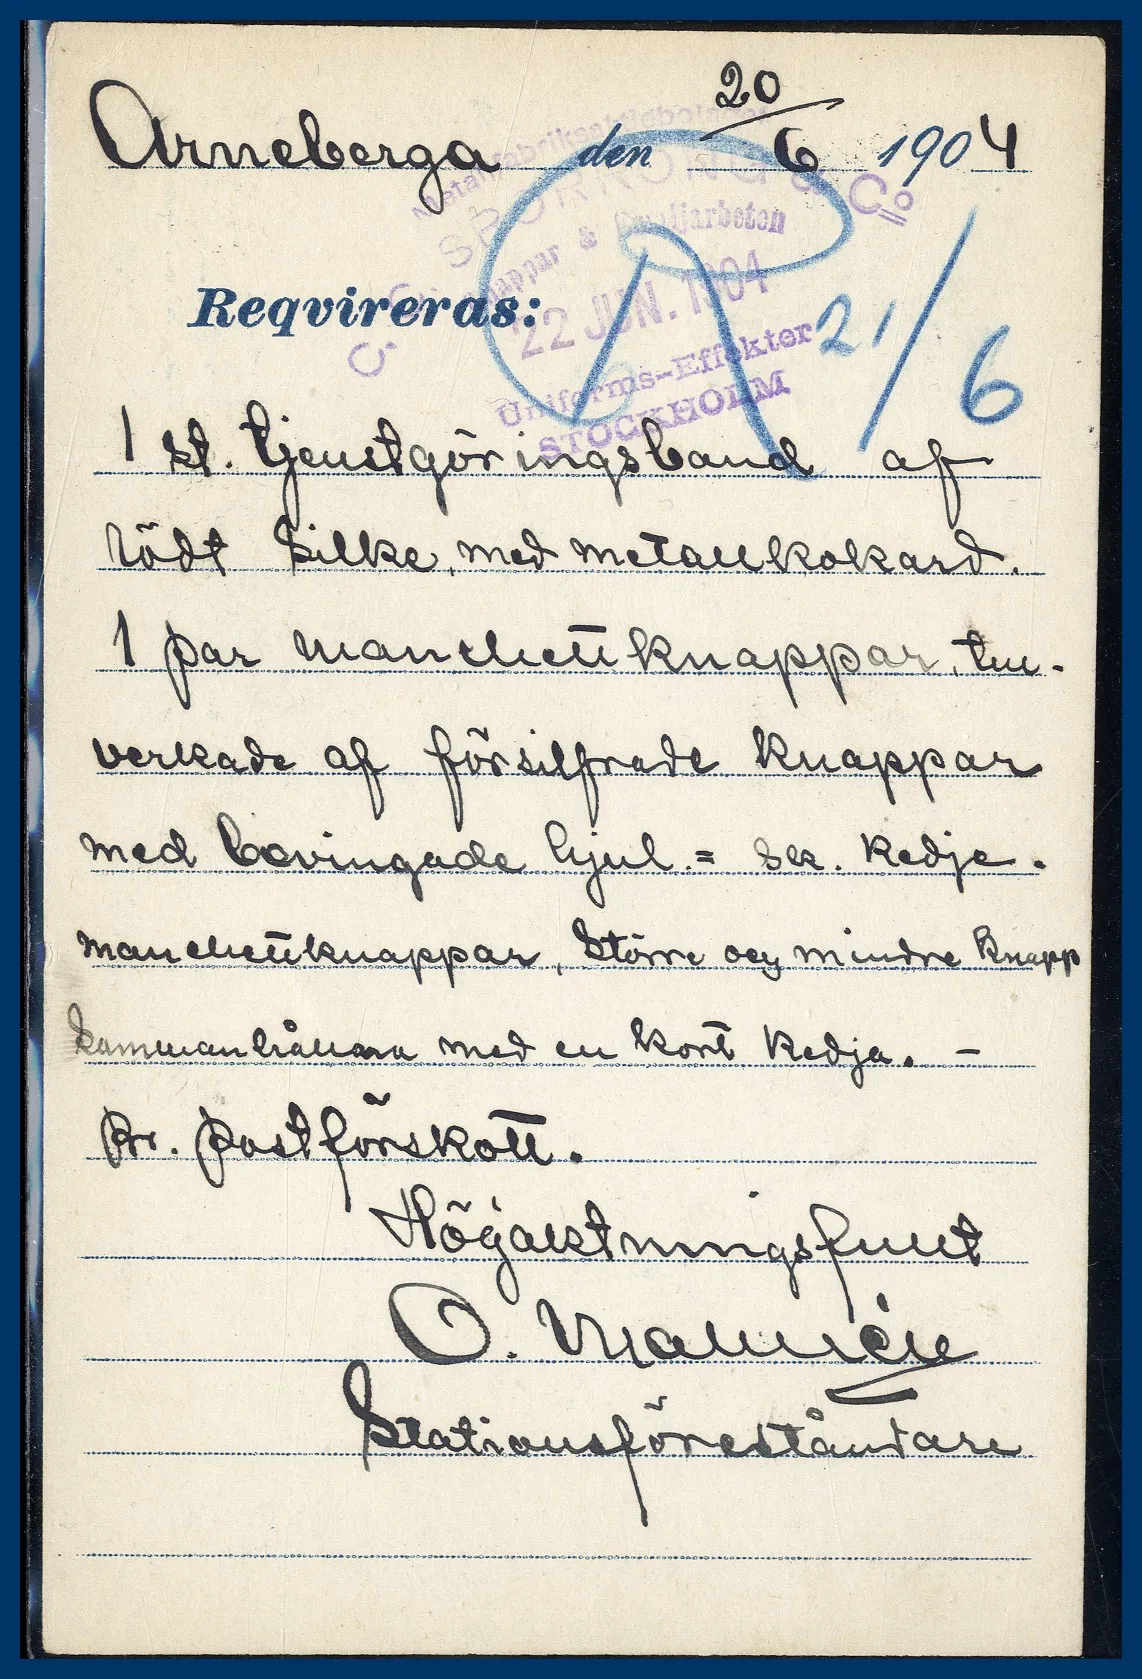 Arneberga den 20/6 1904
Metallfabriksaktiebolaget
C. C. SPORRONG & Co
Knappar & Emaljarbeten
22 JUN. 1904
Uniforms-Effekter
STOCKHOLM
21/6
Reqvireras:
1 st. tjenstgöringsband af
rödt silke, med metallkokard.
1 par manchettknappar, till-
verkade af försilfrade knappar
med bevingade hjul. = s.k. kedje-
manchettknappar, större och mindre knapp
sammanhållna med en kort kedja. —
pr. postförskott.
Högaktningsfullt
O. Malmén
Stationsföreståndare